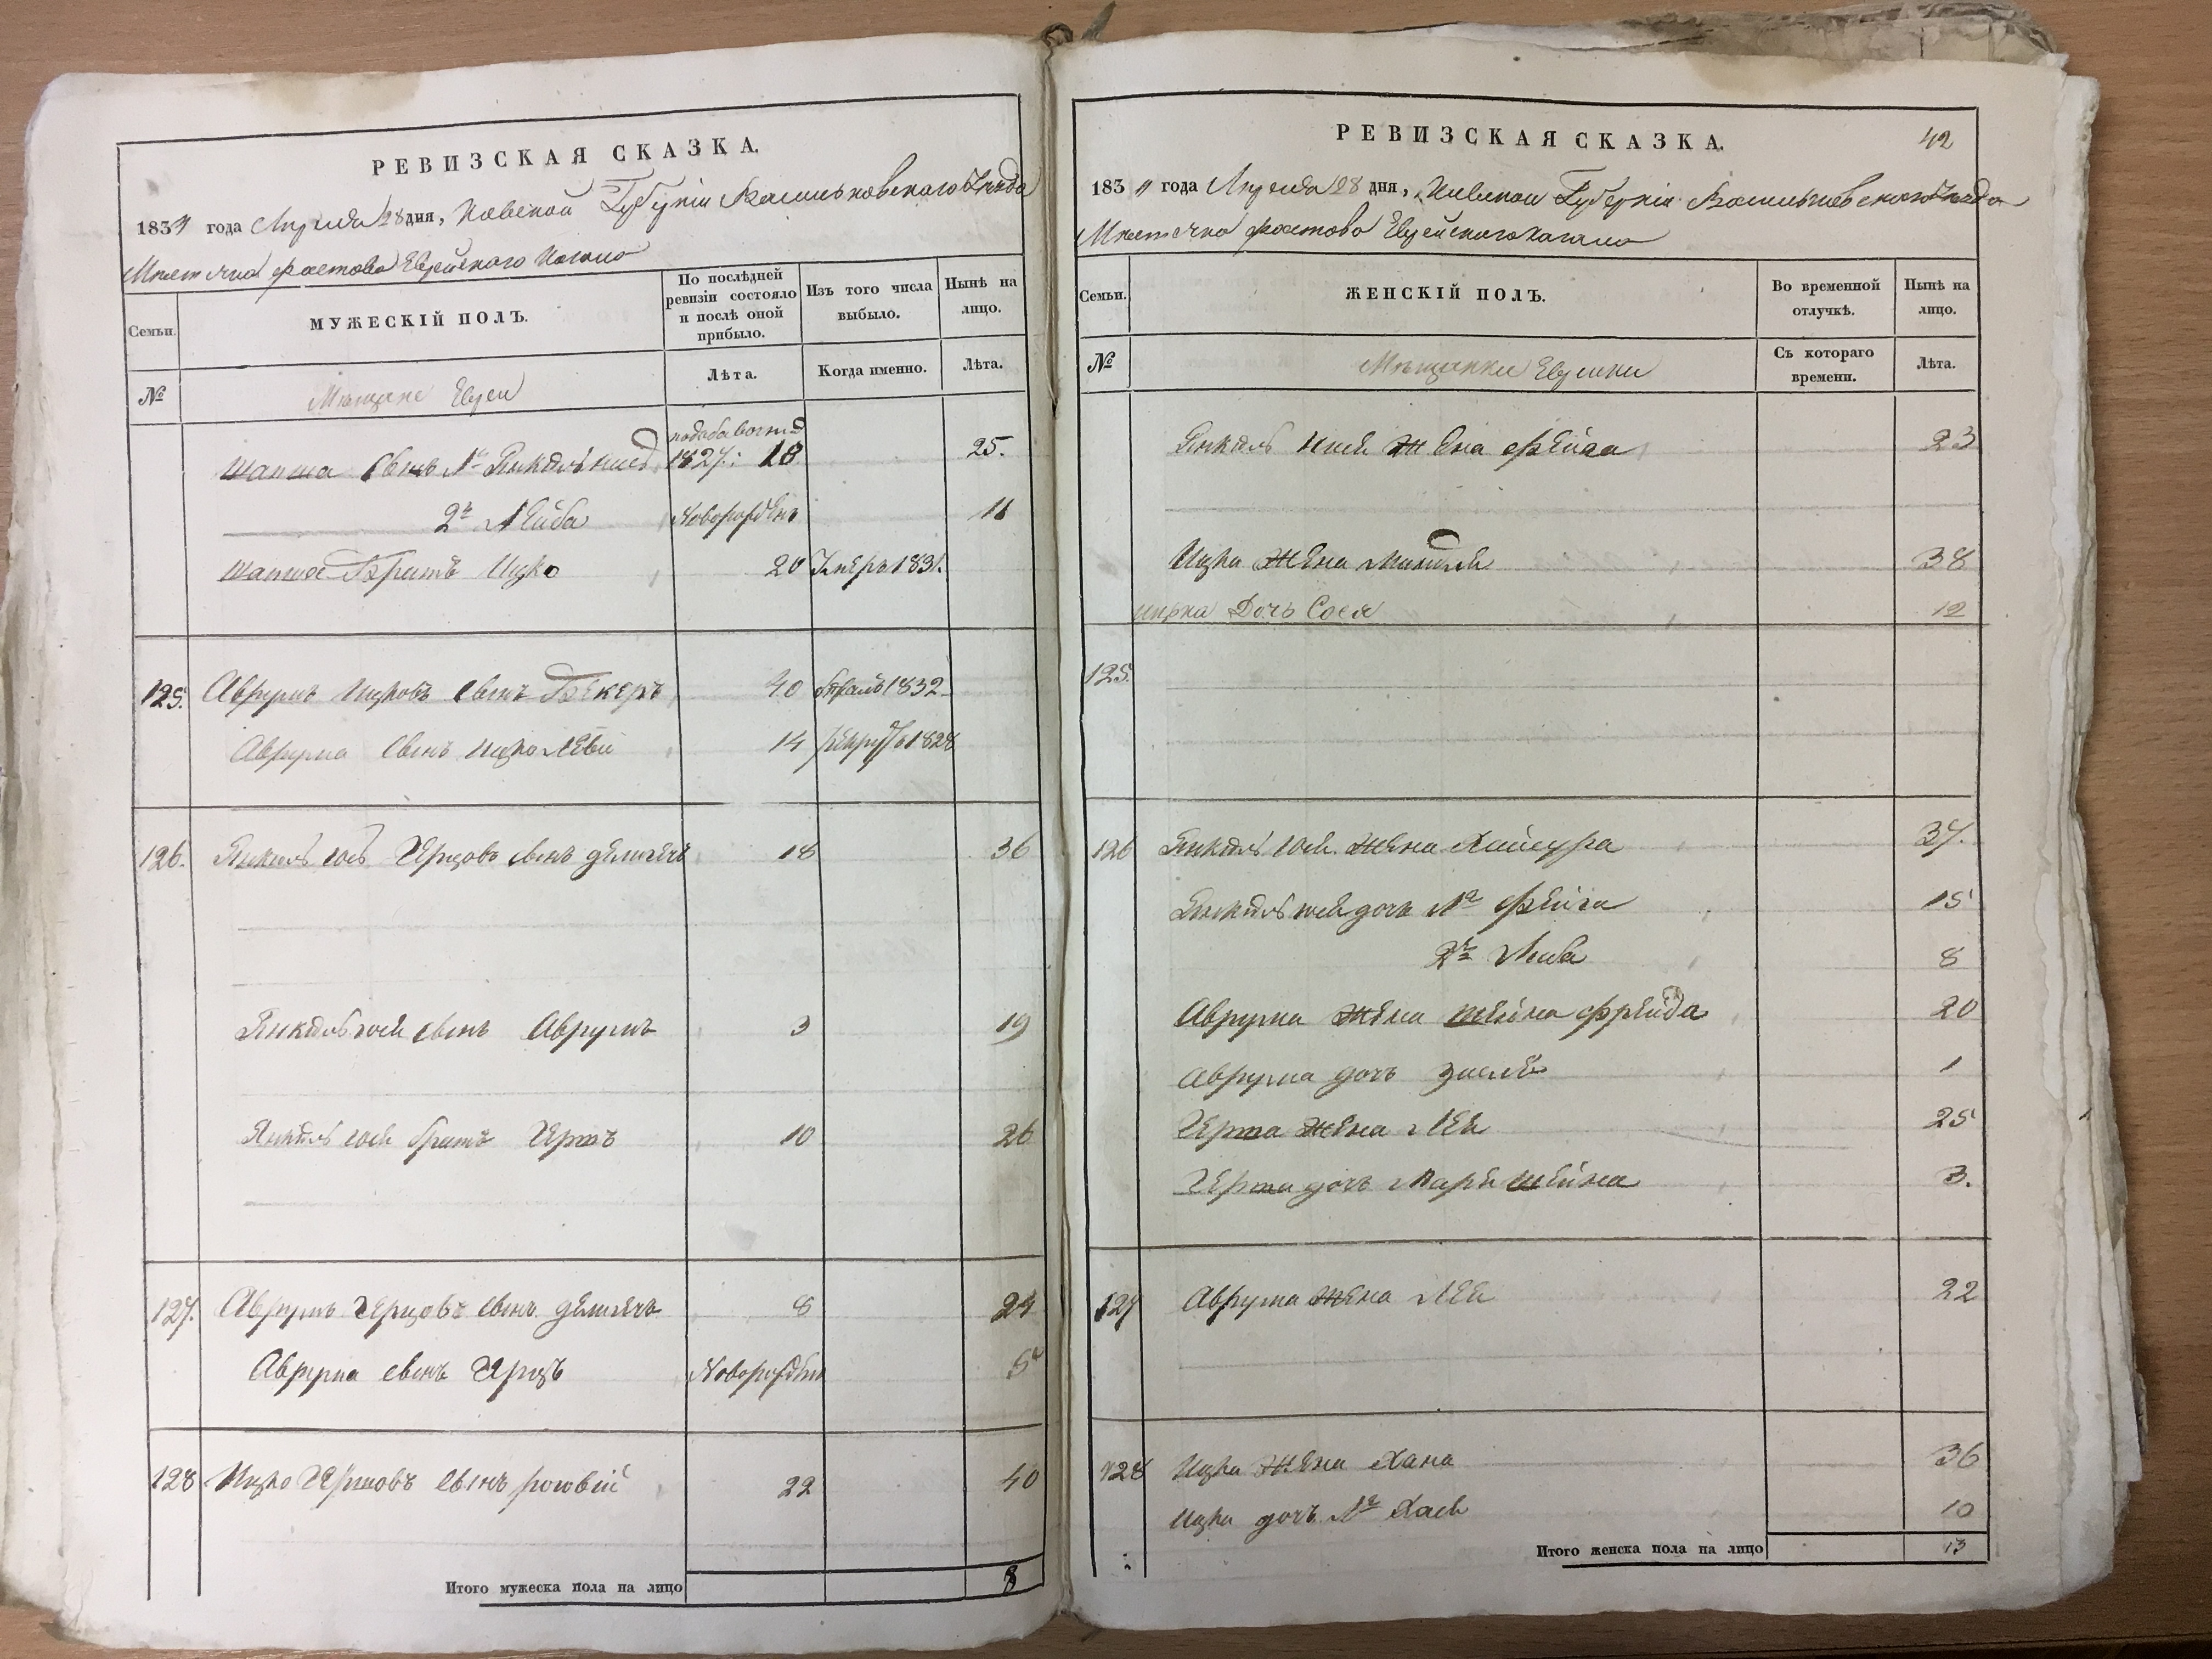 РЕВИЗСКАЯ СКАЗКА.
1834 года Апреля 28 дня, Киевской Губернiи Васильковскаго Уезда
Местечка Фастова Еврейского Кагала
Семьи.
МУЖЕСКIЙ ПОЛЪ.
По послѣдней ревизiи состояло и послѣ оной прибыло.
Изъ того числа выбыло.
Нынѣ на лицо.
№
Мещане Евреи
Лѣта.
Когда именно.
Лѣта.
Шапша Сынъ 1й Янкель 1827: 18 25.
2й Лейба Новорожденъ 11
Шапша Братъ Ицко 20 1831.
125. Аврумъ Ицковъ Сынъ Бекеръ 40 1832
Аврума Сынъ Ицко Лейб 14 1828
126. Янкель Герцовъ сынъ 18 36
Янкель сынъ Аврумъ 3 19
Янкель братъ Герш 10 26
127. Аврумъ Герцовъ сынъ 8 24
Аврума сынъ Герцъ Новорожден 5
128 Ицко сынъ 22 40
Итого мужеска пола на лицо 8
РЕВИЗСКАЯ СКАЗКА. 42
1834 года Апреля 28 дня, Киевской Губернiи Васильковскаго Уезда
Местечка Фастова Еврейского Кагала
Семьи.
ЖЕНСКIЙ ПОЛЪ.
Во временной отлучкѣ.
Нынѣ на лицо.
№
Мещанки Еврейки
Съ котораго времени.
Лѣта.
Янкель жена Фейга 23
Ицка жена 38
Ицка Дочь Сося 12
125.
126 Янкель жена 37.
Янкель дочь 1я Фейга 15
2я Либа 8
Аврума жена Шейна Фрейда 20
Аврума дочь 1
жена Лея 25
дочь Марь Шейна 3.
127 Аврума жена Лея 22
128 Ицка жена Хана 36
Ицка дочь 1я Хася 10
Итого женска пола на лицо 13